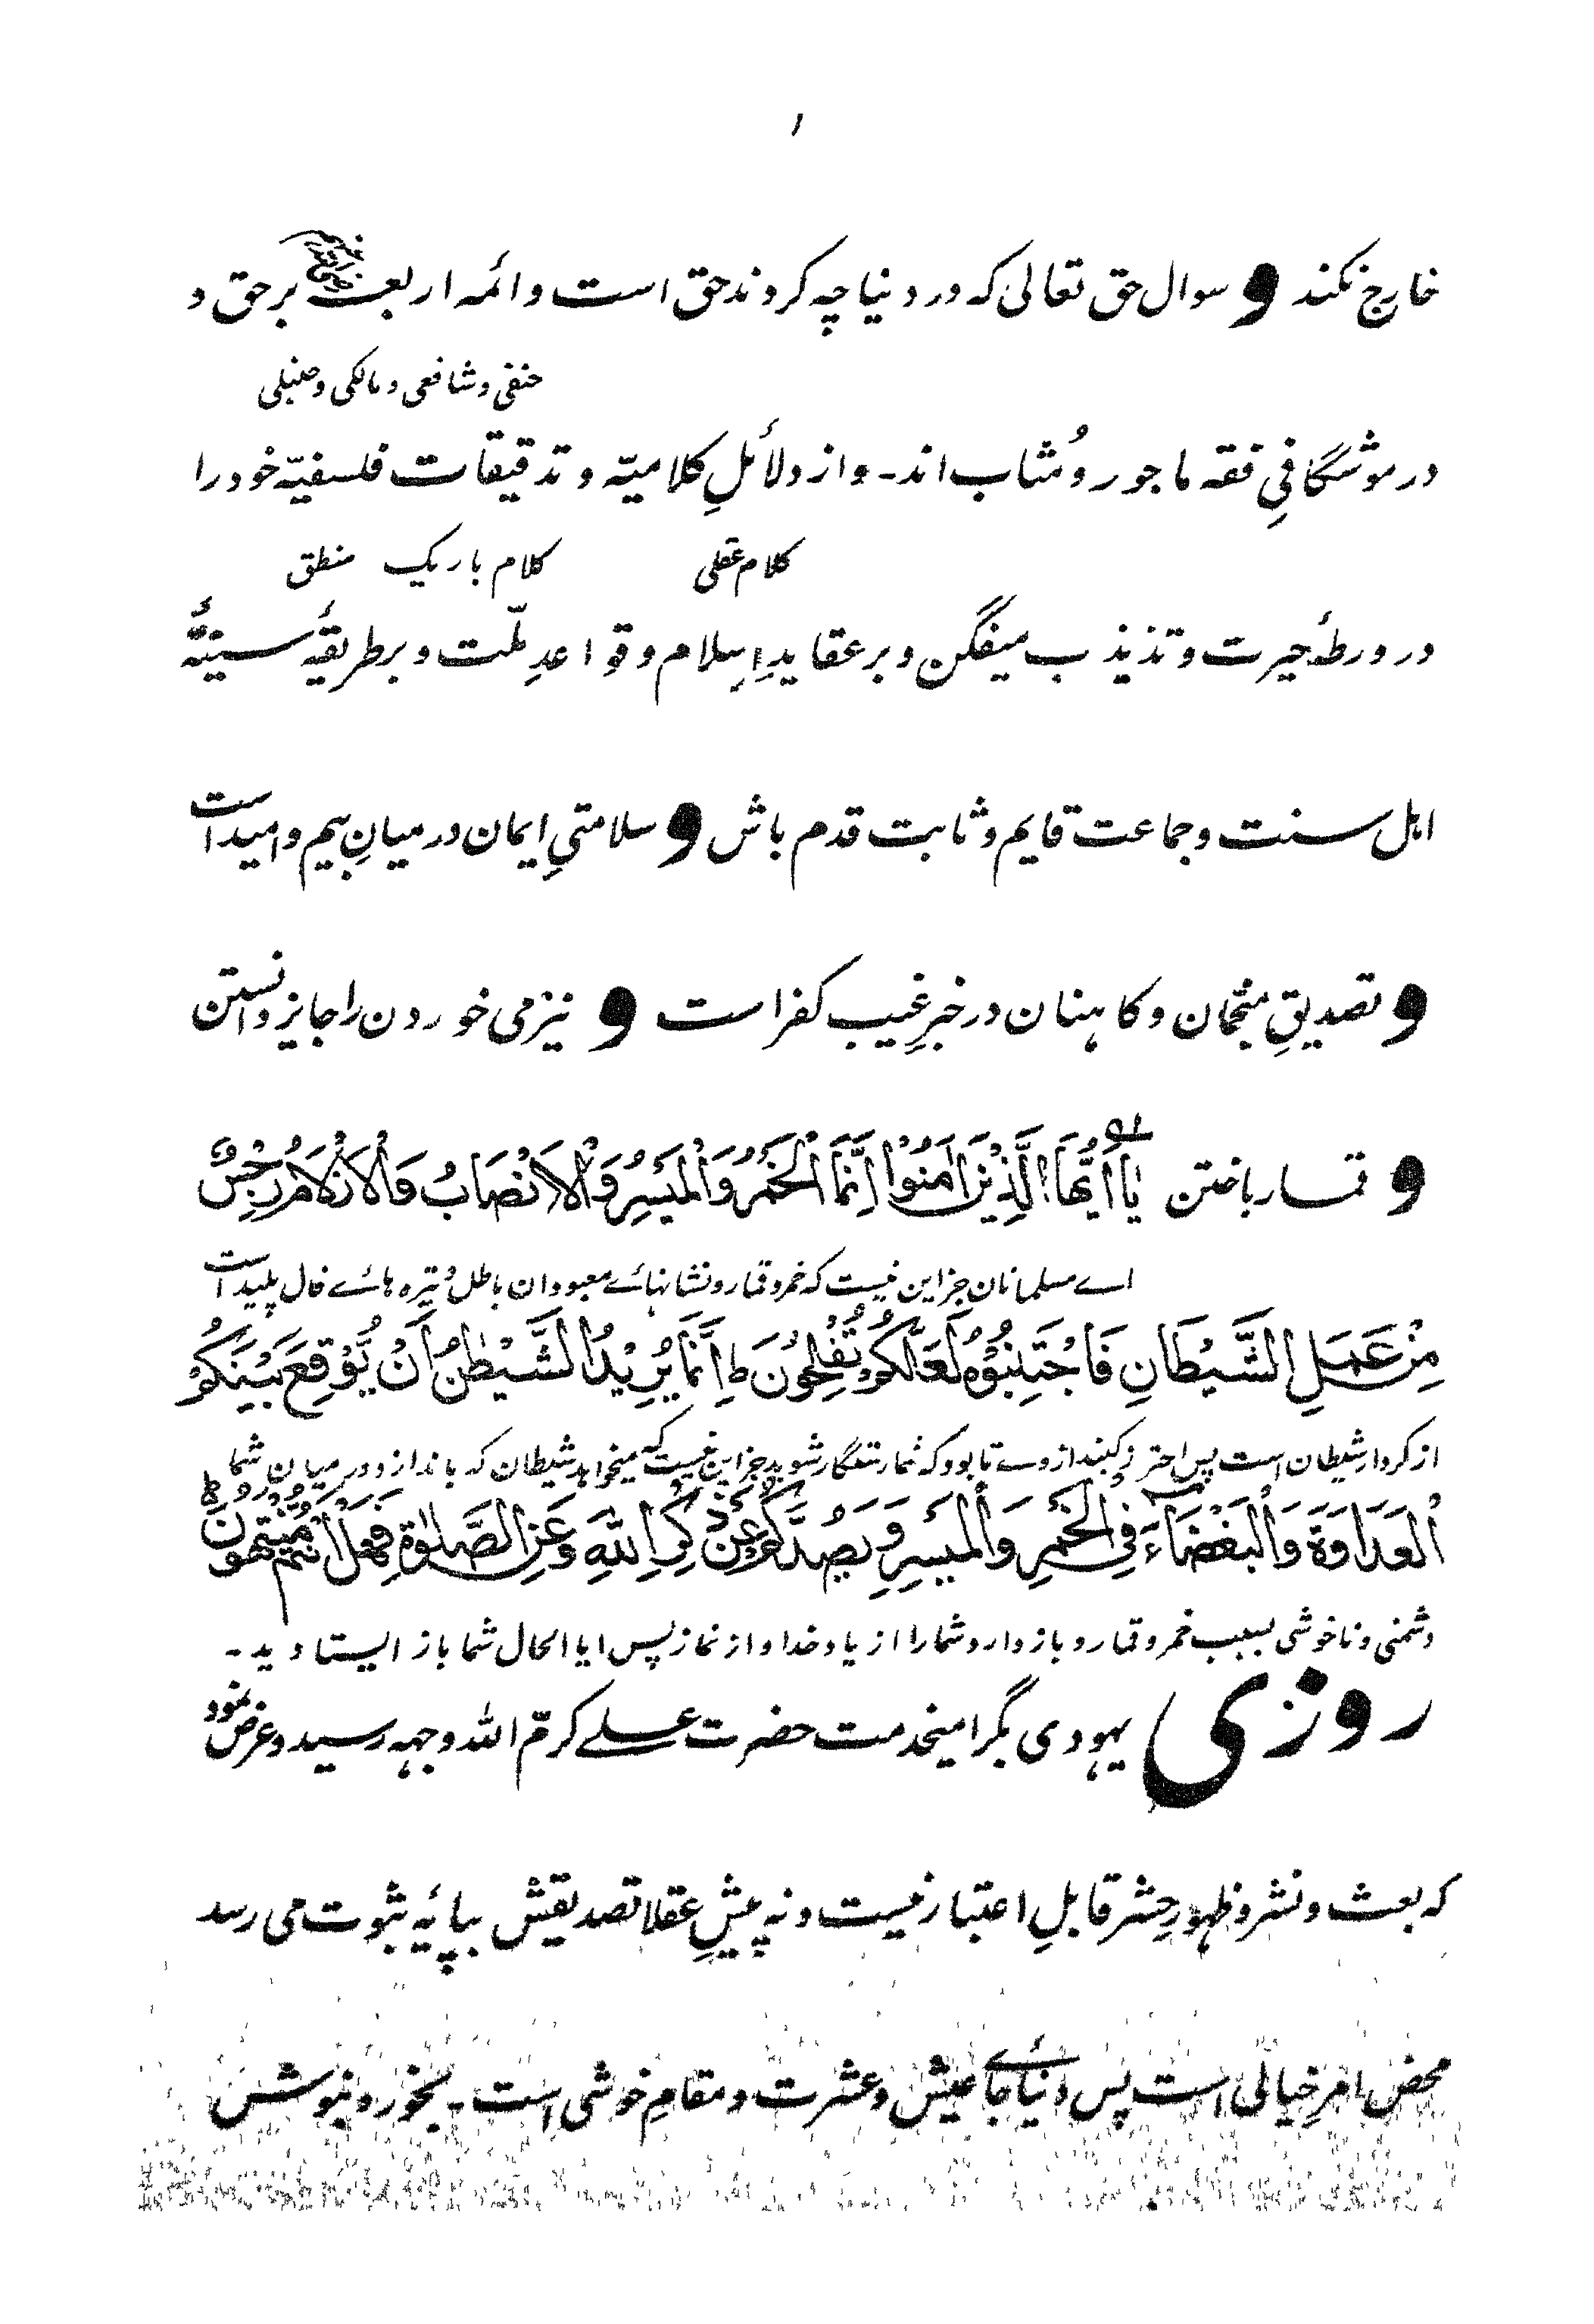 خارج نکند و سوال حق تعالیٰ که در دنیا چه کردند حق است و ائمه اربعه بر حق و
حنفی و شافعی و مالکی و حنبلی
در موشگافیِ فقه ماجور و مُثاب اند۔ واز دلائلِ کلامیّه و تدقیقات فلسفیّه خود را
کلام عقلی کلام باریک منطق
در ورطهٔ حیرت و تذبذب میفگن و بر عقایدِ اسلام و قواعدِ ملّت و بر طریقهٔ سنیّهٔ
اهل سنت و جماعت قایم و ثابت قدم باش و سلامتیِ ایمان درمیانِ بیم و امید است
و تصدیقِ منجمان و کاهنان در خبرِ غیب کفر است و نیز می خوردن را جایز دانستن
و قمار باختن یٰاَ اَیُّهَا الَّذِیْنَ اٰمَنُوْا اِنَّمَا الْخَمْرُ وَالْمَیْسِرُ وَالْاَنْصَابُ وَالْاَزْلَامُ رِجْسٌ
اے مسلمانان جز این نیست که خمر و قمار و نشانهائے معبودان باطل و تیره هائے فال پلید است
مِنْ عَمَلِ الشَّیْطَانِ فَاجْتَنِبُوْهُ لَعَلَّکُمْ تُفْلِحُوْنَ ط اِنَّمَا یُرِیْدُ الشَّیْطٰنُ اَنْ یُّوْقِعَ بَیْنَکُمُ
از کردار شیطان است پس احتراز کنید از وے تا بود که شما رستگار شوید جز این نیست که میخواهد شیطان که باندازد درمیان شما
الْعَدَاوَةَ وَالْبَغْضَاءَ فِی الْخَمْرِ وَالْمَیْسِرِ وَیَصُدَّکُمْ عَنْ ذِکْرِ اللهِ وَعَنِ الصَّلٰوةِ فَهَلْ اَنْتُمْ مُّنْتَهُوْنَ ط
دشمنی و ناخوشی بسبب خمر و قمار و باز دارد شما را از یاد خدا و از نماز پس ایا الحال شما باز ایستادید۔
روزی یهودی بگرامیخدمت حضرت علے کرّم الله وجهه رسید و عرض نمود
که بعث و نشر و ظهورِ حشر قابلِ اعتبار نیست و نه پیشِ عقلا تصدیقش بپائیه ثبوت می رسد
محض امرِ خیالی است پس دنیائے جا عیش و عشرت و مقامِ خوشی است۔ بخور و بنوش